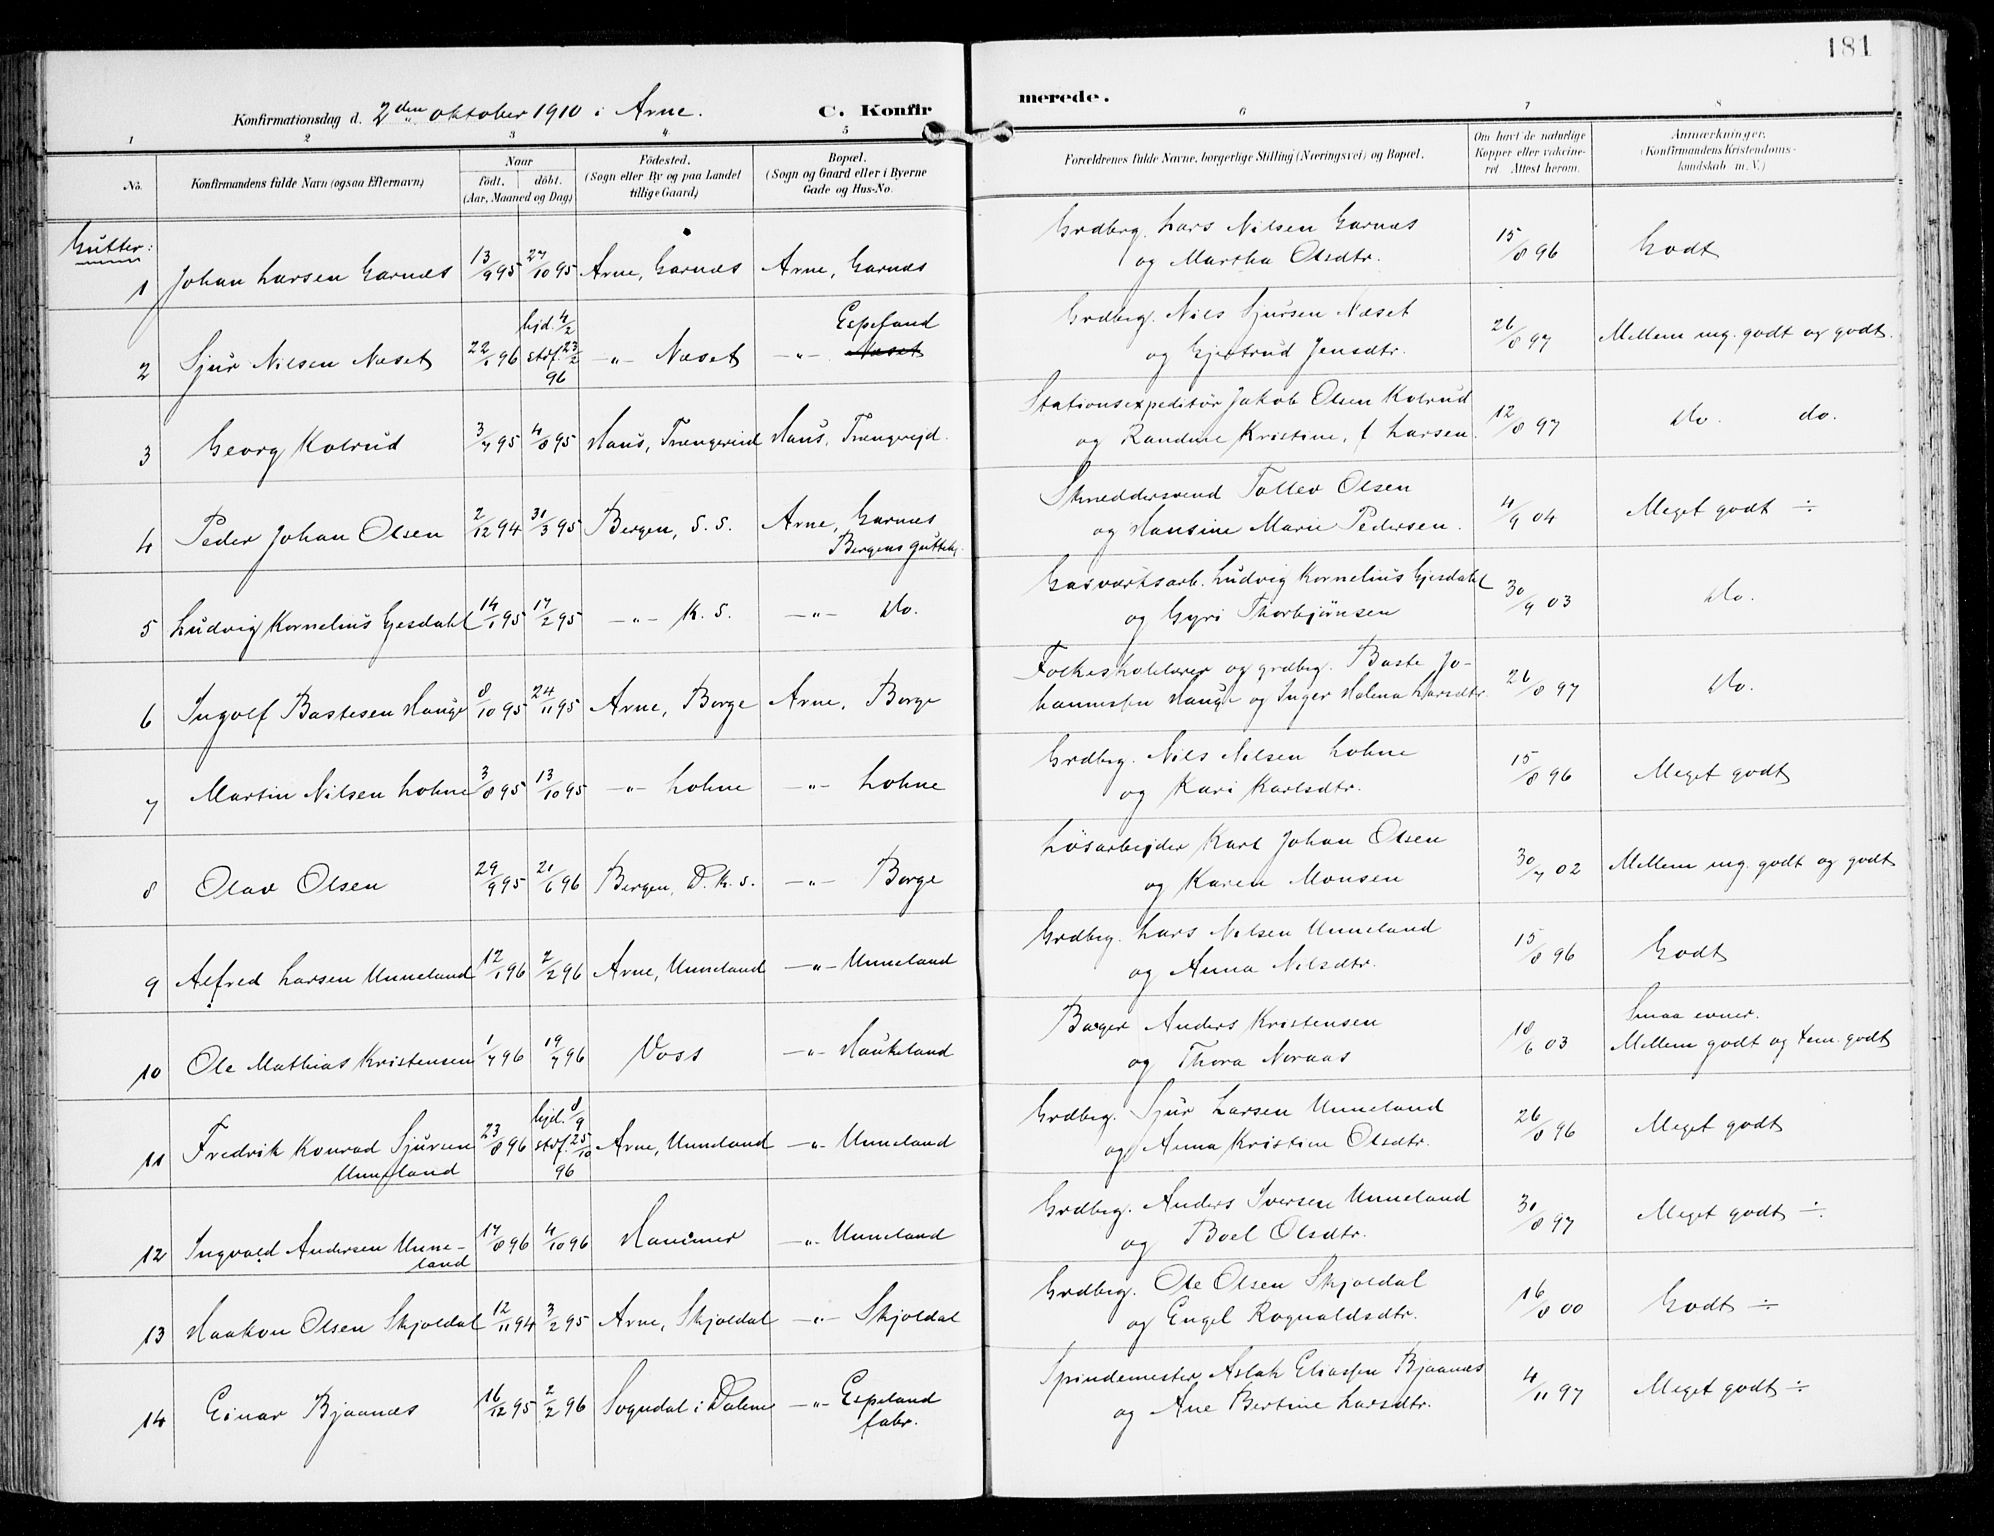 181
Konfirmationsdag d. 2den oktober 1910 i Arne. C. Konfir merede.
1 2 3 4 5 6 7 8
No. Konfirmandens fulde Navn (ogsaa Efternavn) Naar Födt. döbt. (Aar, Maaned og Dag) Födested. (Sogn eller By og paa Landet tillige Gaard) Bopæl. (Sogn og Gaard eller i Byerne Gade og Hus-No. Forældrenes fulde Navne, borgerlige Stilling (Næringsvei) og Bopæl. Om havt de naturlige Kopper eller vakcineret. Attest herom. Anmærkninger. (Konfirmandens Kristendomskundskab m. V.)
Gutter:
1 Johan Larsen Garnæs 13/9 95 27/10 95 Arne, Garnæs Arne, Garnæs Grdbrg. Lars Nilsen Garnæs og Martha Olsdtr. 15/8 96 Godt
2 Sjur Nilsen Næset 22/1 96 hjd. 4/2 stdf. 23/2 96 -"- Næset -"- Espeland Næset Grdbrg. Nils Sjursen Næset og Gjertrud Jensdtr. 26/8 97 Mellem mg. godt og godt.
3 Georg Kolrud 3/7 95 4/8 95 Haus, Trengereid Haus, Trengereid. Stationsexpeditør Jakob Olsen Kolrud og Randine Kristine, f. Larsen. 12/8 97 do. do.
4 Peder Johan Olsen 2/12 94 31/3 95 Bergen, S. S. Arne, Garnæs Bergens guttehj. Skreddersvend Tollev Olsen og Hansine Marie Pedersen. 4/9 04 Meget godt ÷
5 Ludvig Kornelius Gjesdahl 14/1 95 17/2 95 -"- K. S. -"- do. Gasværksarb. Ludvig Kornelius Gjesdahl og Gyri Thorbjønsen 30/9 03 do.
6 Ingolf Bastesen Hauge 8/10 95 24/11 95 Arne, Borge Arne, Borge Folkeskolelærer og grdbrg. Baste Johannessen Hauge og Inger Helena Larsdtr 26/8 97 do.
7 Martin Nilsen Lohne 3/8 95 13/10 95 -"- Lohne -"- Lohne Grdbrg. Nils Nilsen Lohne og Kari Karlsdtr. 15/8 96 Meget godt
8 Olav Olsen 29/9 95 21/6 96 Bergen, D. k. s. -"- Borge Løsarbeider Karl Johan Olsen og Karen Monsen 30/7 02 Mellem mg. godt og godt
9 Alfred Larsen Unneland 12/1 96 2/2 96 Arne, Unneland -"- Unneland Grdbrg. Lars Nilsen Unneland og Anna Nilsdtr. 15/8 96 Godt
10 Ole Mathias Kristensen 1/7 96 19/7 96 Voss -"- Haukeland Bager Anders Kristensen og Thora Noraas 18/6 03 Smaa evner. Mellem godt og tem. godt
11 Fredrik Konrad Sjursen Unneland 23/8 96 hjd. 8/9 stdf. 25/10 96 Arne, Unneland -"- Unneland Grdbrg. Sjur Larsen Unneland og Anna Kristine Olsdtr. 26/8 96 Meget godt
12 Ingvald Andersen Unneland 17/8 96 4/10 96 Hammer -"- Unneland Grdbrg. Anders Iversen Unneland og Boel Olsdtr. 30/8 97 Meget godt ÷
13 Haakon Olsen Skjoldal 12/11 94 3/2 95 Arne, Skjoldal -"- Skjoldal Grdbrg. Ole Olsen Skjoldal og Engel Rognaldsdtr. 16/8 00 Godt ÷
14 Einar Bjaanæs 16/12 95 2/2 96 Sogndal i Dalene -"- Espeland fabr. Spindemester Aslak Eliassen Bjaanæs og Ane Bertine Larsdtr. 4/11 97 Meget godt ÷